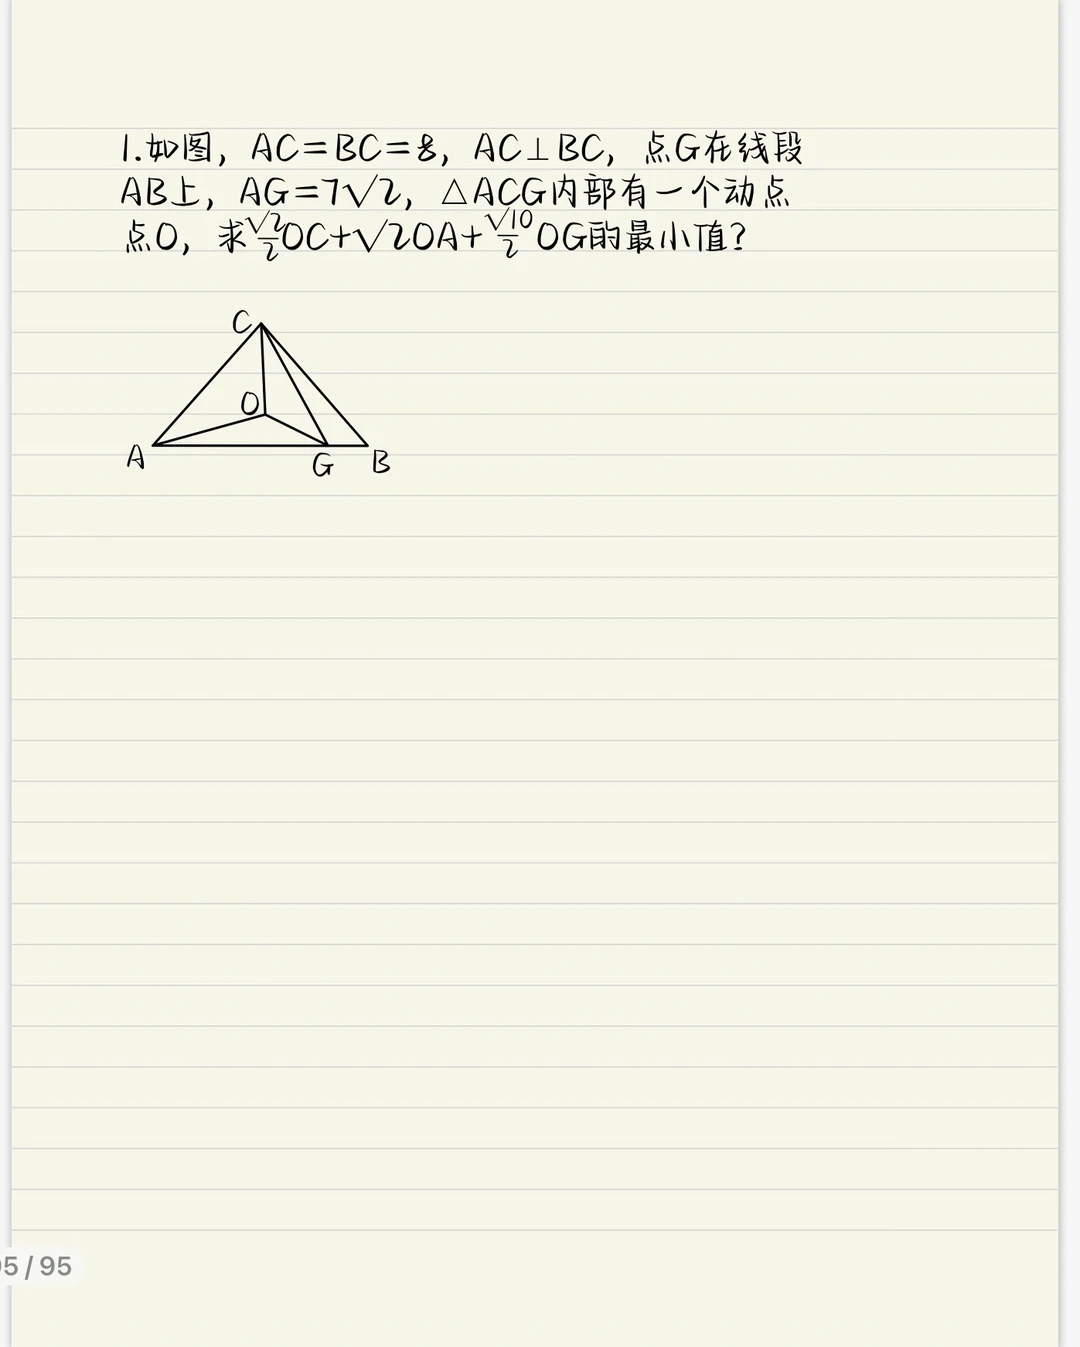 1.如图，AC=BC=8，AC⊥BC，点G在线段
AB上，AG=7√2，△ACG内部有一个动点
点O，求√2/2OC+√2OA+√10/2OG的最小值？
C
O
A
G
B
95/95